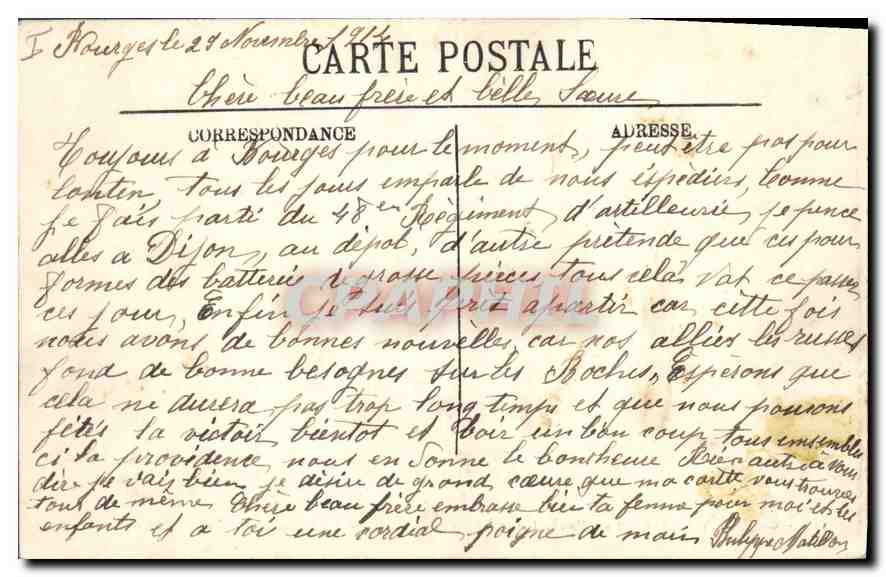 I Bourges le 29 Novembre 1914
CARTE POSTALE
Chère beau frère et bèlle Sœure
CORRESPONDANCE ADRESSE
Toujours a Bourges pour le moment, peut être pas pour
lontin, tous les jours emparle de nous éspedier, Comme
je fais parti du 48 em Règiment d'artilleurie je pence
alles a Dijon, au dépot, d'autre prètende que ces pour
formes des batterie de grosse pièces tous celà vat ce passer
ces jour, Enfin je suis prèt apartir car cette fois
nous avons de bonnes nouvèlles, car nos alliés les russes
fond de bonne besognes sur les Boches, Espèrons que
cela ne durera pas trop long temps et que nous pourons
fétés la victoir bientot et boir un bon coup tous emsembles
ci la providence nous en donne le bonsheure a vous
dire je vais bien je désire de grand cœure que ma carte vous trouves
tous de même Chère beau frère embrasse bien ta femme pour moi et les
enfants et a toi une cordial poigne de main Philippe
CPAPHIL